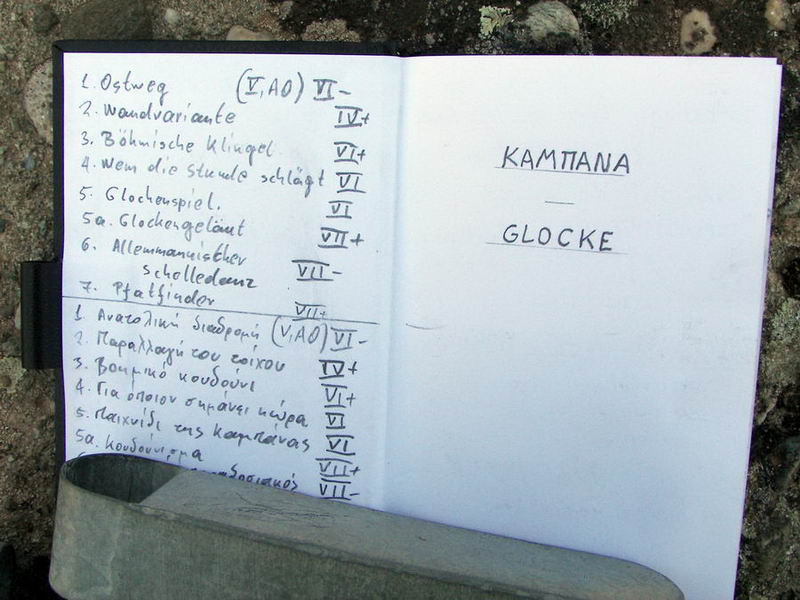 1. Ostweg (V, AO) VI-
2. Wandvariante IV+
3. Böhmische Klingel. VI+
4. Wem die Stunde schlägt VI
5. Glockenspiel. VI
5a. Glockengeläut VII+
6. Allemmannischer
Schelledanz VII-
7. Pfatfinder VII+
1. Ανατολική διαδρομή (V, AO) VI-
2. Παραλλαγή του τοίχου IV+
3. Βοημικό κουδούνι VI+
4. Για όποιον σημάνει η ώρα VI
5. Παιχνίδι της καμπάνας VI
5a. Κουδούνισμα VII+
VII-
ΚΑΜΠΑΝΑ
—
GLOCKE